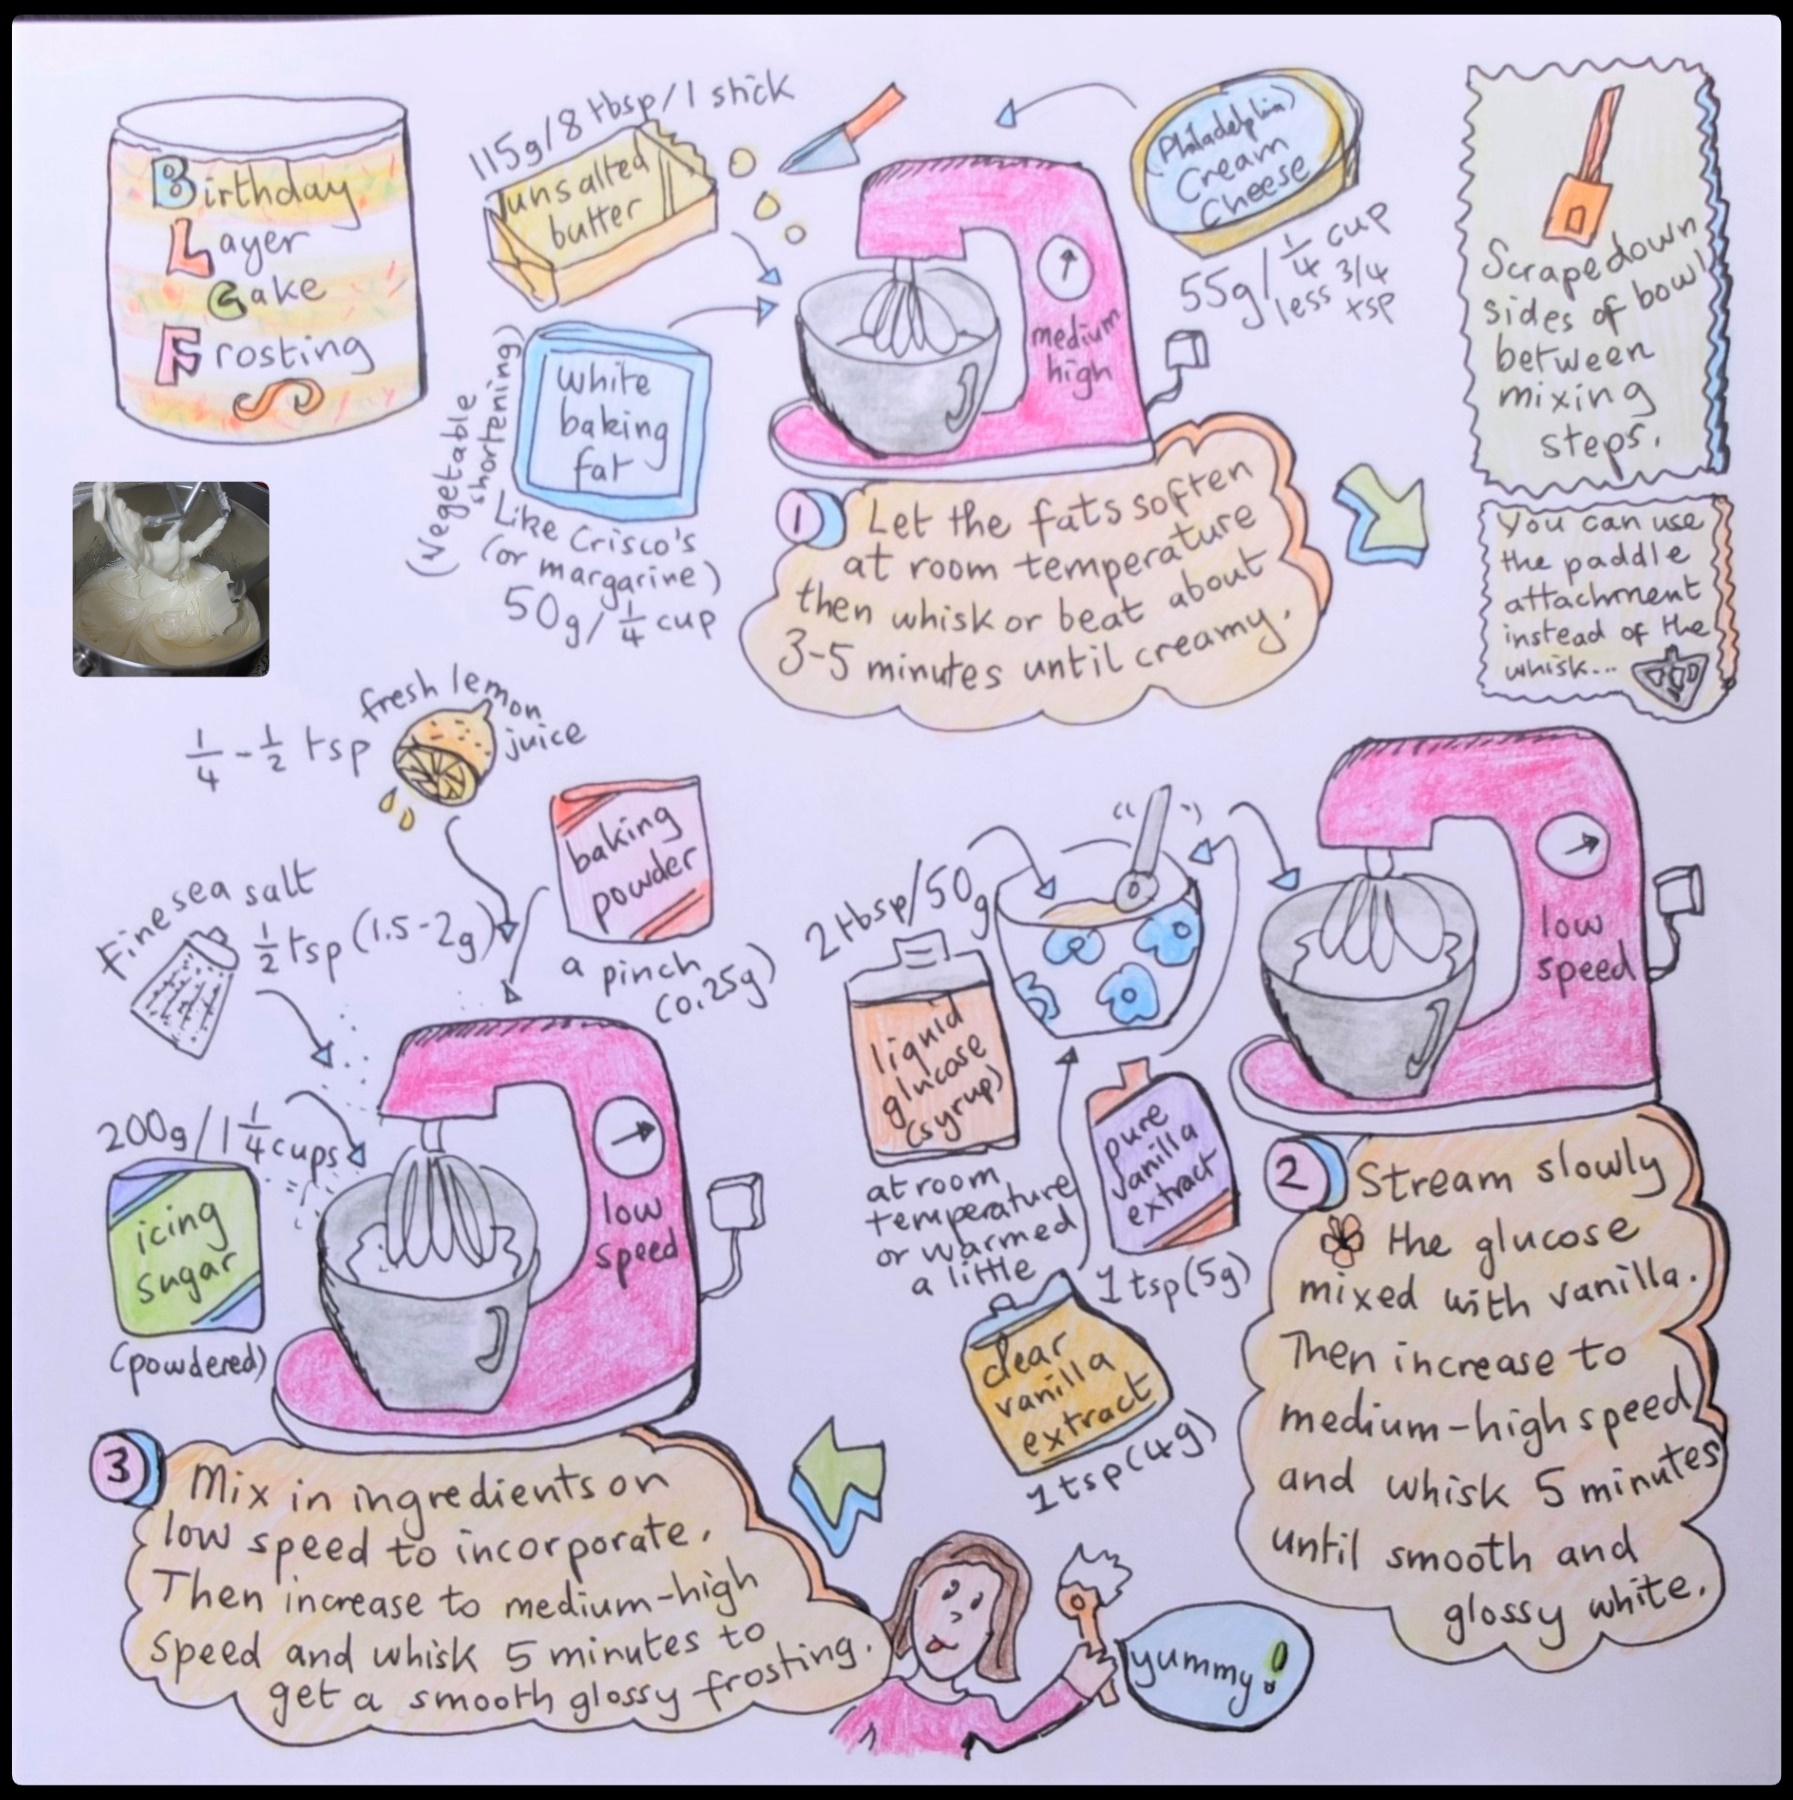 Birthday
Layer
Cake
Frosting
115g/8 tbsp/1 stick
unsalted
butter
(Philadelphia)
Cream
Cheese
55g/1/4 cup
less 3/4
tsp
white
baking
fat
(Vegetable
shortening)
Like Crisco's
(or margarine)
50g/1/4 cup
medium
high
1 Let the fats soften
at room temperature
then whisk or beat about
3-5 minutes until creamy.
Scrape down
sides of bowl
between
mixing
steps.
You can use
the paddle
attachment
instead of the
whisk...
2 tbsp/50g
liquid
glucose
(syrup)
at room
temperature
or warmed
a little
pure
vanilla
extract
1 tsp(5g)
clear
vanilla
extract
1 tsp(4g)
low
speed
2 Stream slowly
the glucose
mixed with vanilla.
Then increase to
medium-high speed
and whisk 5 minutes
until smooth and
glossy white.
1/4 - 1/2 tsp
fresh lemon
juice
baking
powder
a pinch
(0.25g)
Fine sea salt
1/2 tsp (1.5-2g)
200g/1 1/4 cups
icing
sugar
(powdered)
low
speed
3 Mix in ingredients on
low speed to incorporate.
Then increase to medium-high
speed and whisk 5 minutes to
get a smooth glossy frosting.
yummy!